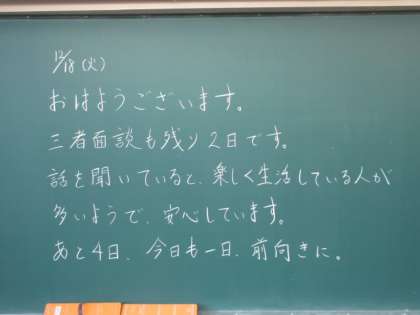 12/18(火)
おはようございます。
三者面談も残り2日です。
話を聞いていると、楽しく生活している人が
多いようで、安心しています。
あと4日、今日も一日、前向きに。